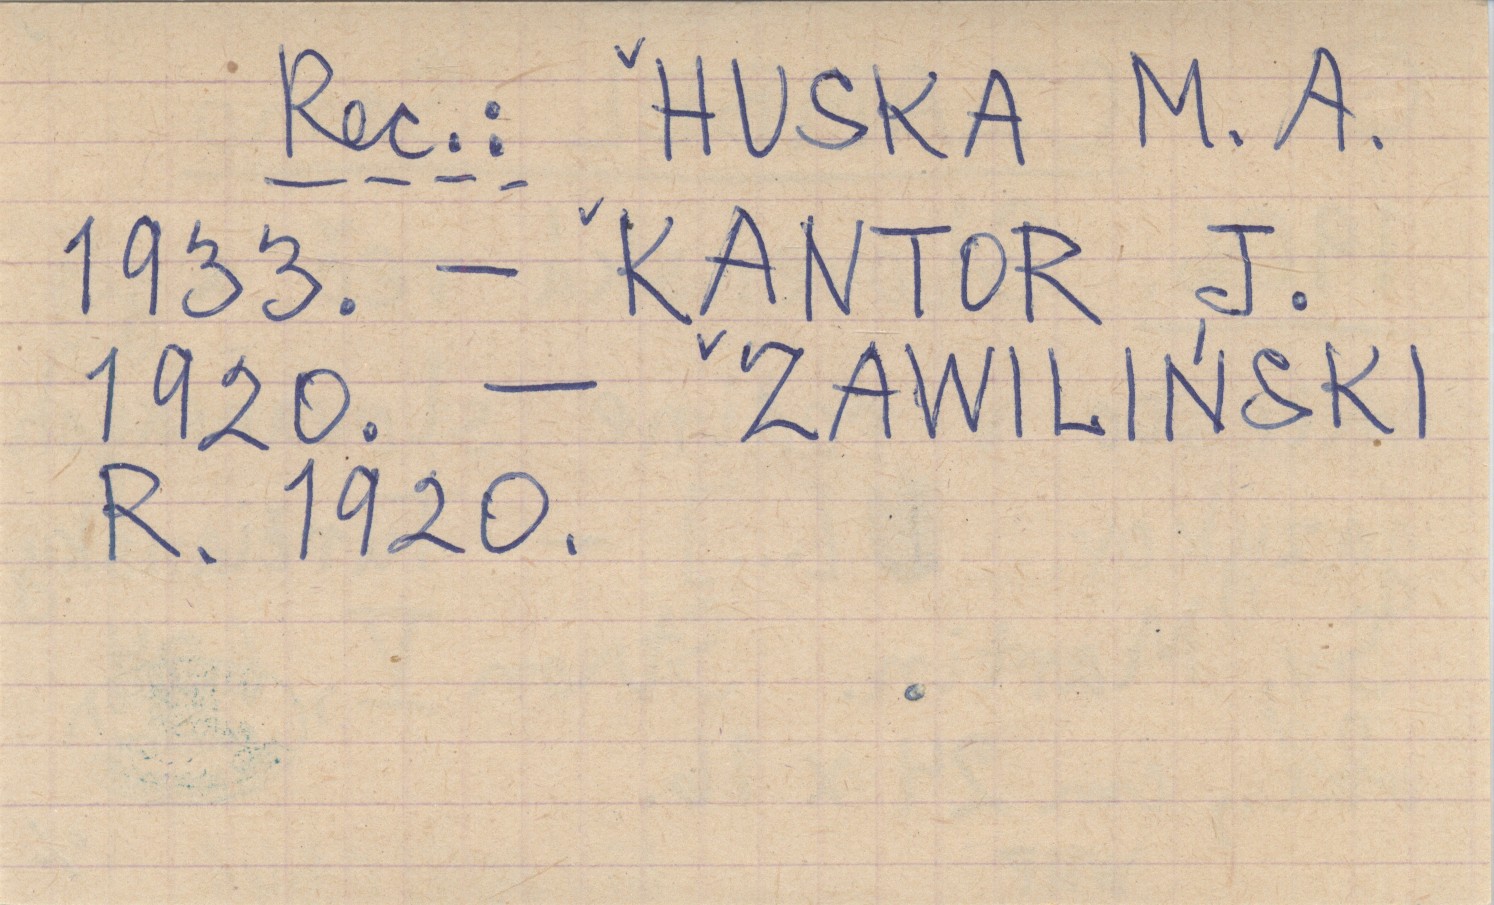 Rec.: ˇHUSKA M. A.
1933. — ˇKANTOR J.
1920. — ˇZAWILIŃSKI
R. 1920.